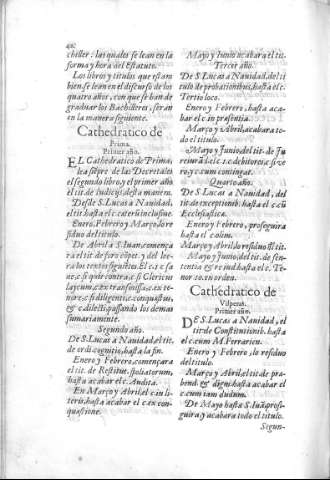 chiller: las quales se lean en la
forma y hora del Estatuto.
Los libros y titulos que estaro
bien se lean en el discurso de los
quatro años, con que se han de
graduar los Bachilleres, seran
en la manera siguiente.
Cathedratico de
Prima.
Primer año.
EL Cathedratico de Prima,
lea siẽpre de las Decretales
el segundo libro, y el primer año
el tit. de Iudicijs desta manera.
Desde S. Lucas a Nauidad,
el tit. hasta el c. cæterũ inclusiue.
Enero, Febrero y Março, lo re
siduo del titulo.
De Abril a S. Iuan, comença
ra el tit. de foro cõpet. y del lee-
ra los textos siguiẽtes. El c. si
ne, c. si quis contra, c. si Clericus
laycum, c. ex transmissa, c. ex te-
nore, c. si diligenti, c. conquestus,
& c. dilecti, passando los demas
sumariamente.
Segundo año.
De S. Lucas a Nauidad, el tit.
de ordi. cognitio. hasta la fin.
Enero y Febrero, començara
el tit. de Restitut. spoliatorum,
hasta acabar el c. Audita.
En Março y Abril, el c. in li-
teris, hasta acabar el c. ex con-
questione.
Mayo y Iunio acabara el tit.
Tercer año.
De S. Lucas a Nauidad, del ti
tulo de probationibus, hasta el c.
Tertio loco.
Enero y Febrero, hasta aca-
bar el c. in præsentia.
Março y Abril, acabara to-
do el titulo.
Mayo y Iunio, del tit. de Iu
reiurãd. el c. 1. c. debitores, c. si ve
ro, y c. cum contingat.
Quarto año.
De S. Lucas a Nauidad, del
tit. de exceptionib. hasta el c. cũ
Ecclesiastica.
Enero y Febrero, proseguira
hasta el c. olim.
Março y Abril, lo residuo del tit.
Mayo y Iunio, del tit. de sen-
tentia & re iud. hasta el c. Te-
nor 20. in orden.
Cathedratico de
Visperas.
Primer año.
DE S. Lucas a Nauidad, el
tit. de Constitutionib. hasta
el c. cum M. Ferrarien.
Enero y Febrero, lo residuo
del titulo.
Março y Abril, el tit. de præ-
bend. & digni. hasta acabar el
c. cum iam dudum.
De Mayo hasta S. Iuã, prosi-
guira y acabara todo el titulo.
Segun-